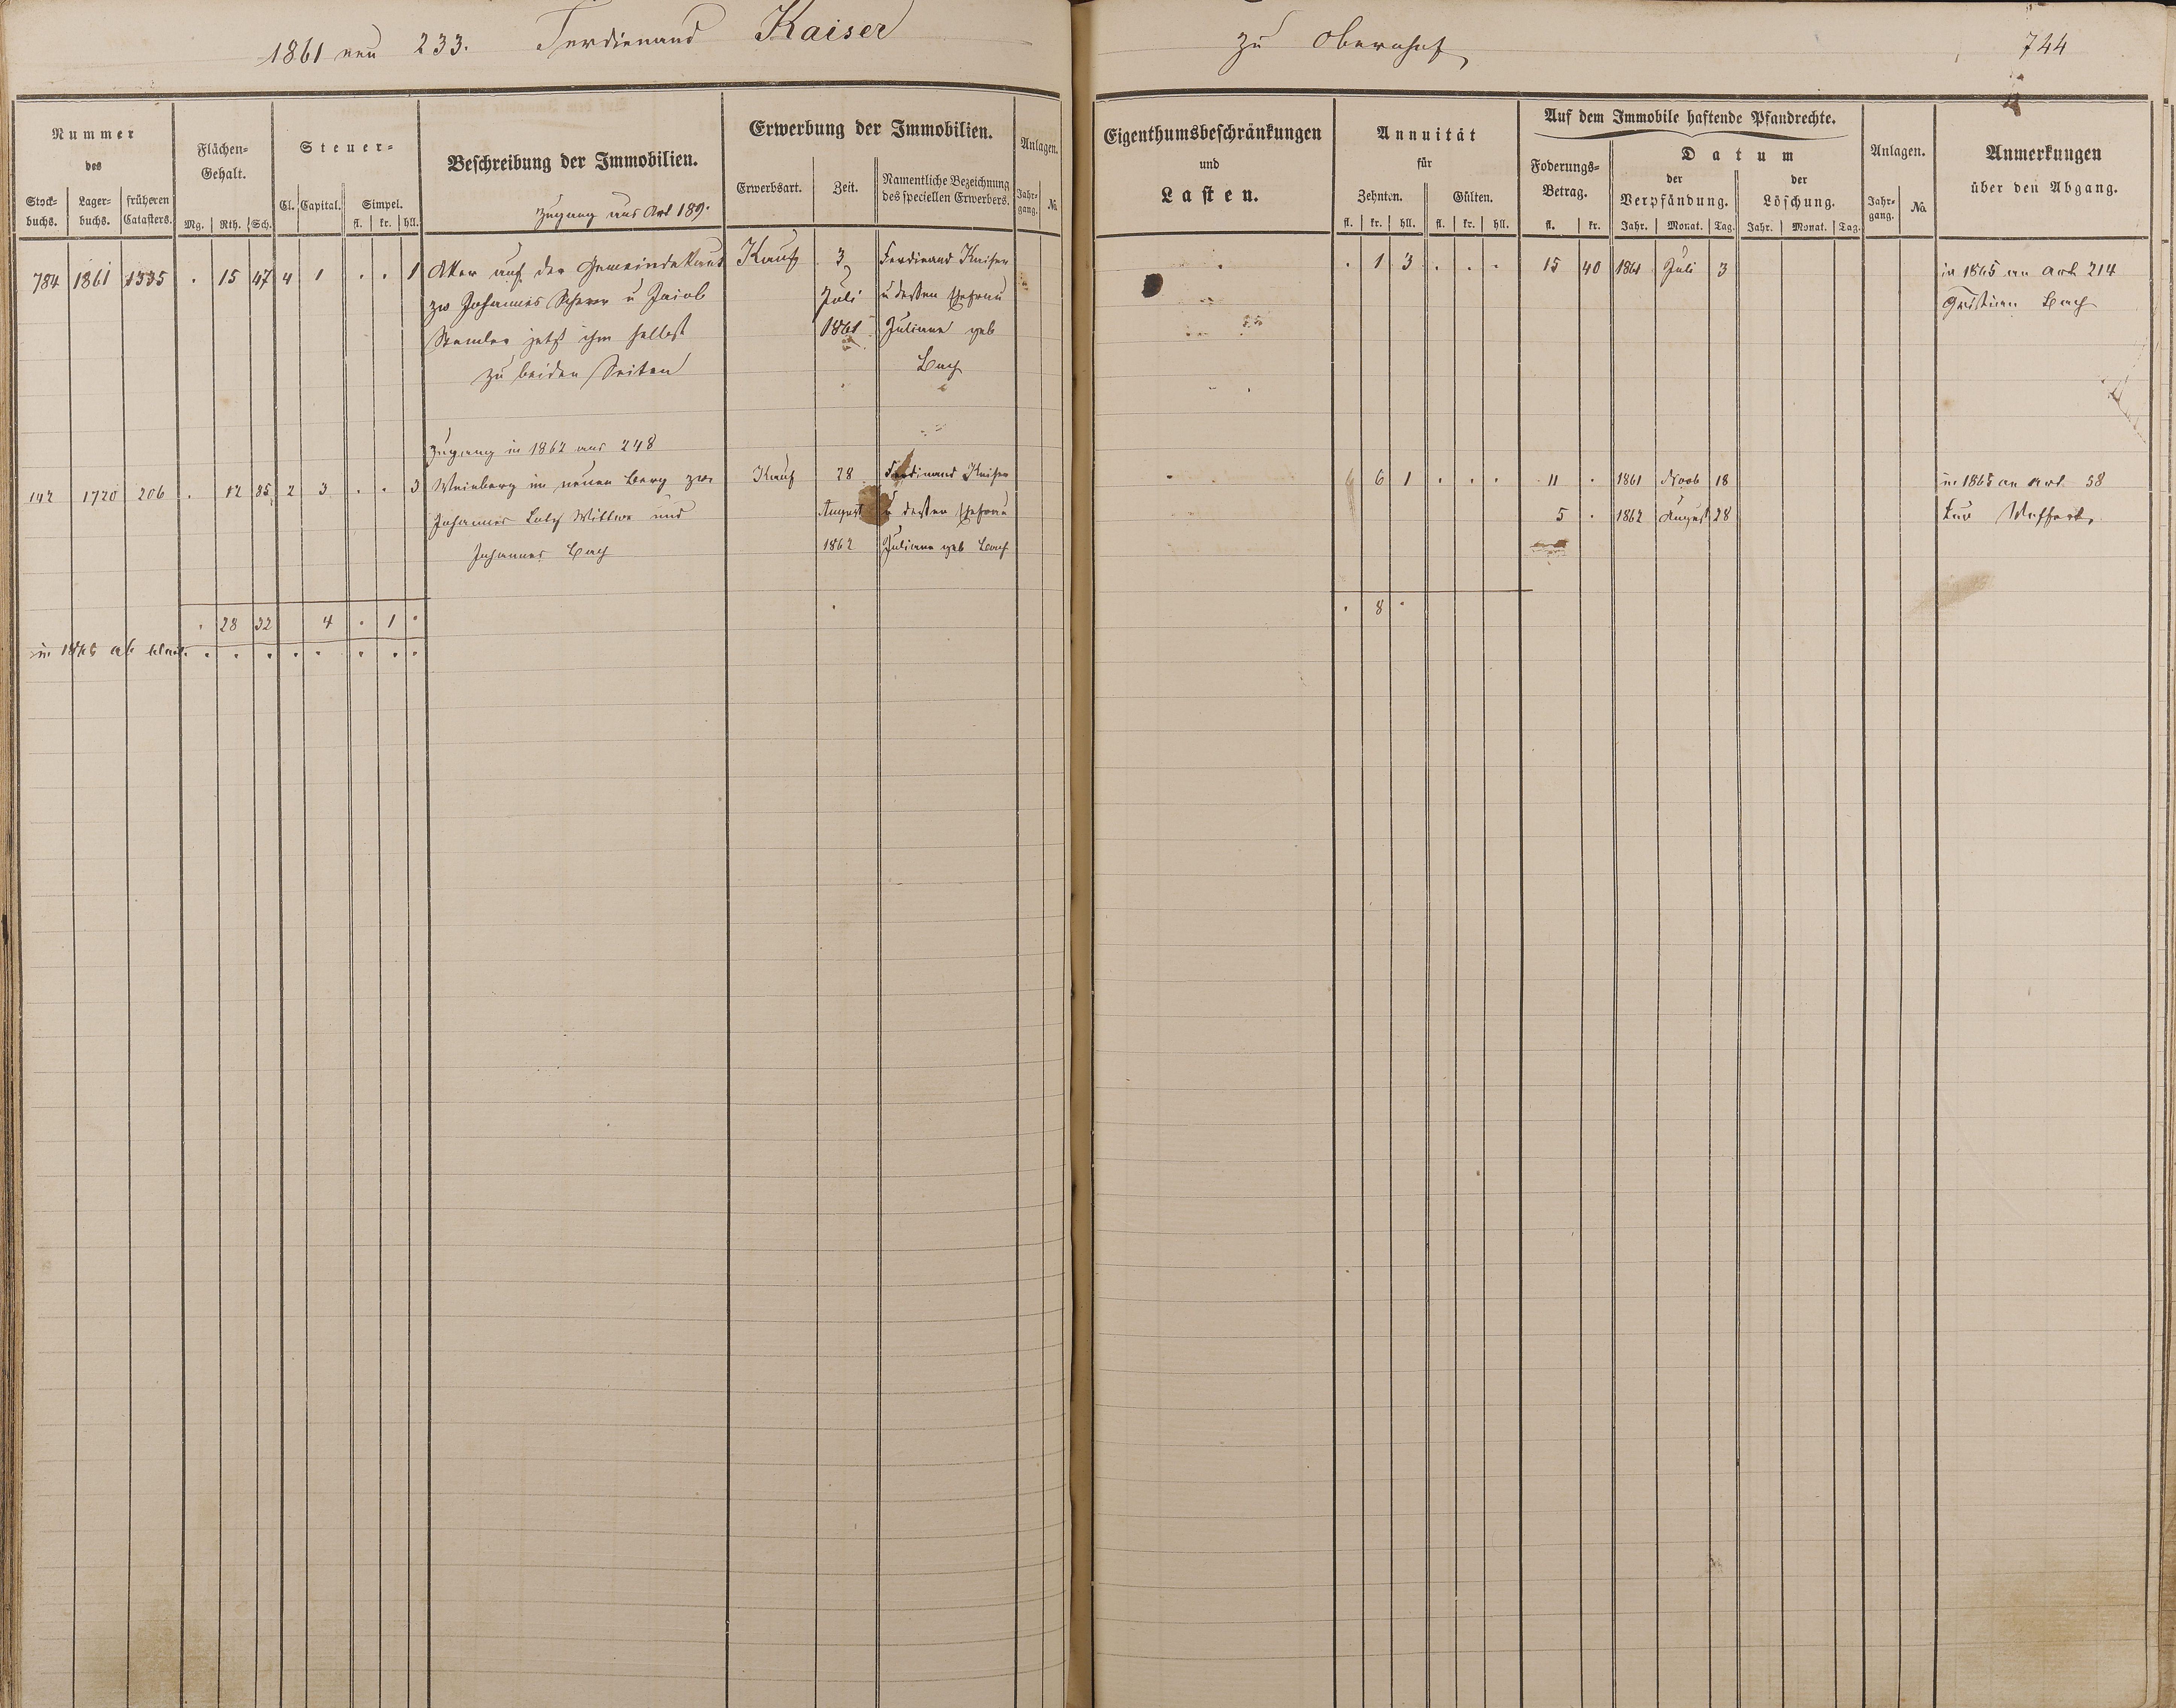 1861 neu 233. Ferdienand Kaiser
zu Obernhof
744
Nummer
des
Stock-buchs. Lager-buchs. früheren Catasters.
Flächen-Gehalt.
Mg. Rth. Sch.
Steuer-
Cl. Capital. Simpel.
fl. kr. hll.
Beschreibung der Immobilien.
Zugang aus Art 189.
Erwerbung der Immobilien.
Erwerbsart. Zeit. Namentliche Bezeichnung des speciellen Erwerbers.
Anlagen.
Jahr-gang. No.
Eigenthumsbeschränkungen
und
Lasten.
Annuität
für
Zehnten. Gülten.
fl. kr. hll. fl. kr. hll.
Auf dem Immobile haftende Pfandrechte.
Foderungs-Betrag.
fl. kr.
Datum
der Verpfändung. der Löschung.
Jahr. Monat. Tag. Jahr. Monat. Tag.
Anlagen.
Jahr-gang. No.
Anmerkungen
über den Abgang.
784 1861 1335 . 15 47 4 1 . . 1 Aker auf der Kauf 3 Ferdinand Kaiser . 1 3 . . . 15 40 1861 Juli 3 in 1865 an Art. 214
zw Johannes Scherer u Jacob Juli u dessen Ehefrau Christian Bach
Stemler jetzt ihm selbst 1861 Juliane geb
zu beiden Seiten Bach
Zugang in 1862 aus 248
142 1720 206 . 12 85 2 3 . . 3 Weinberg im neuen Berg zw. Kauf 28 Ferdinand Kaiser 6 1 . . . 11 . 1861 Novb 18 in 1865 an Art. 58
Johannes Wittwe und August u dessen Ehefrau 5 . 1862 August 28
Johannes Bach 1862 Juliane geb Bach
. 28 32 4 . 1 . . 8 .
in 1865 ab